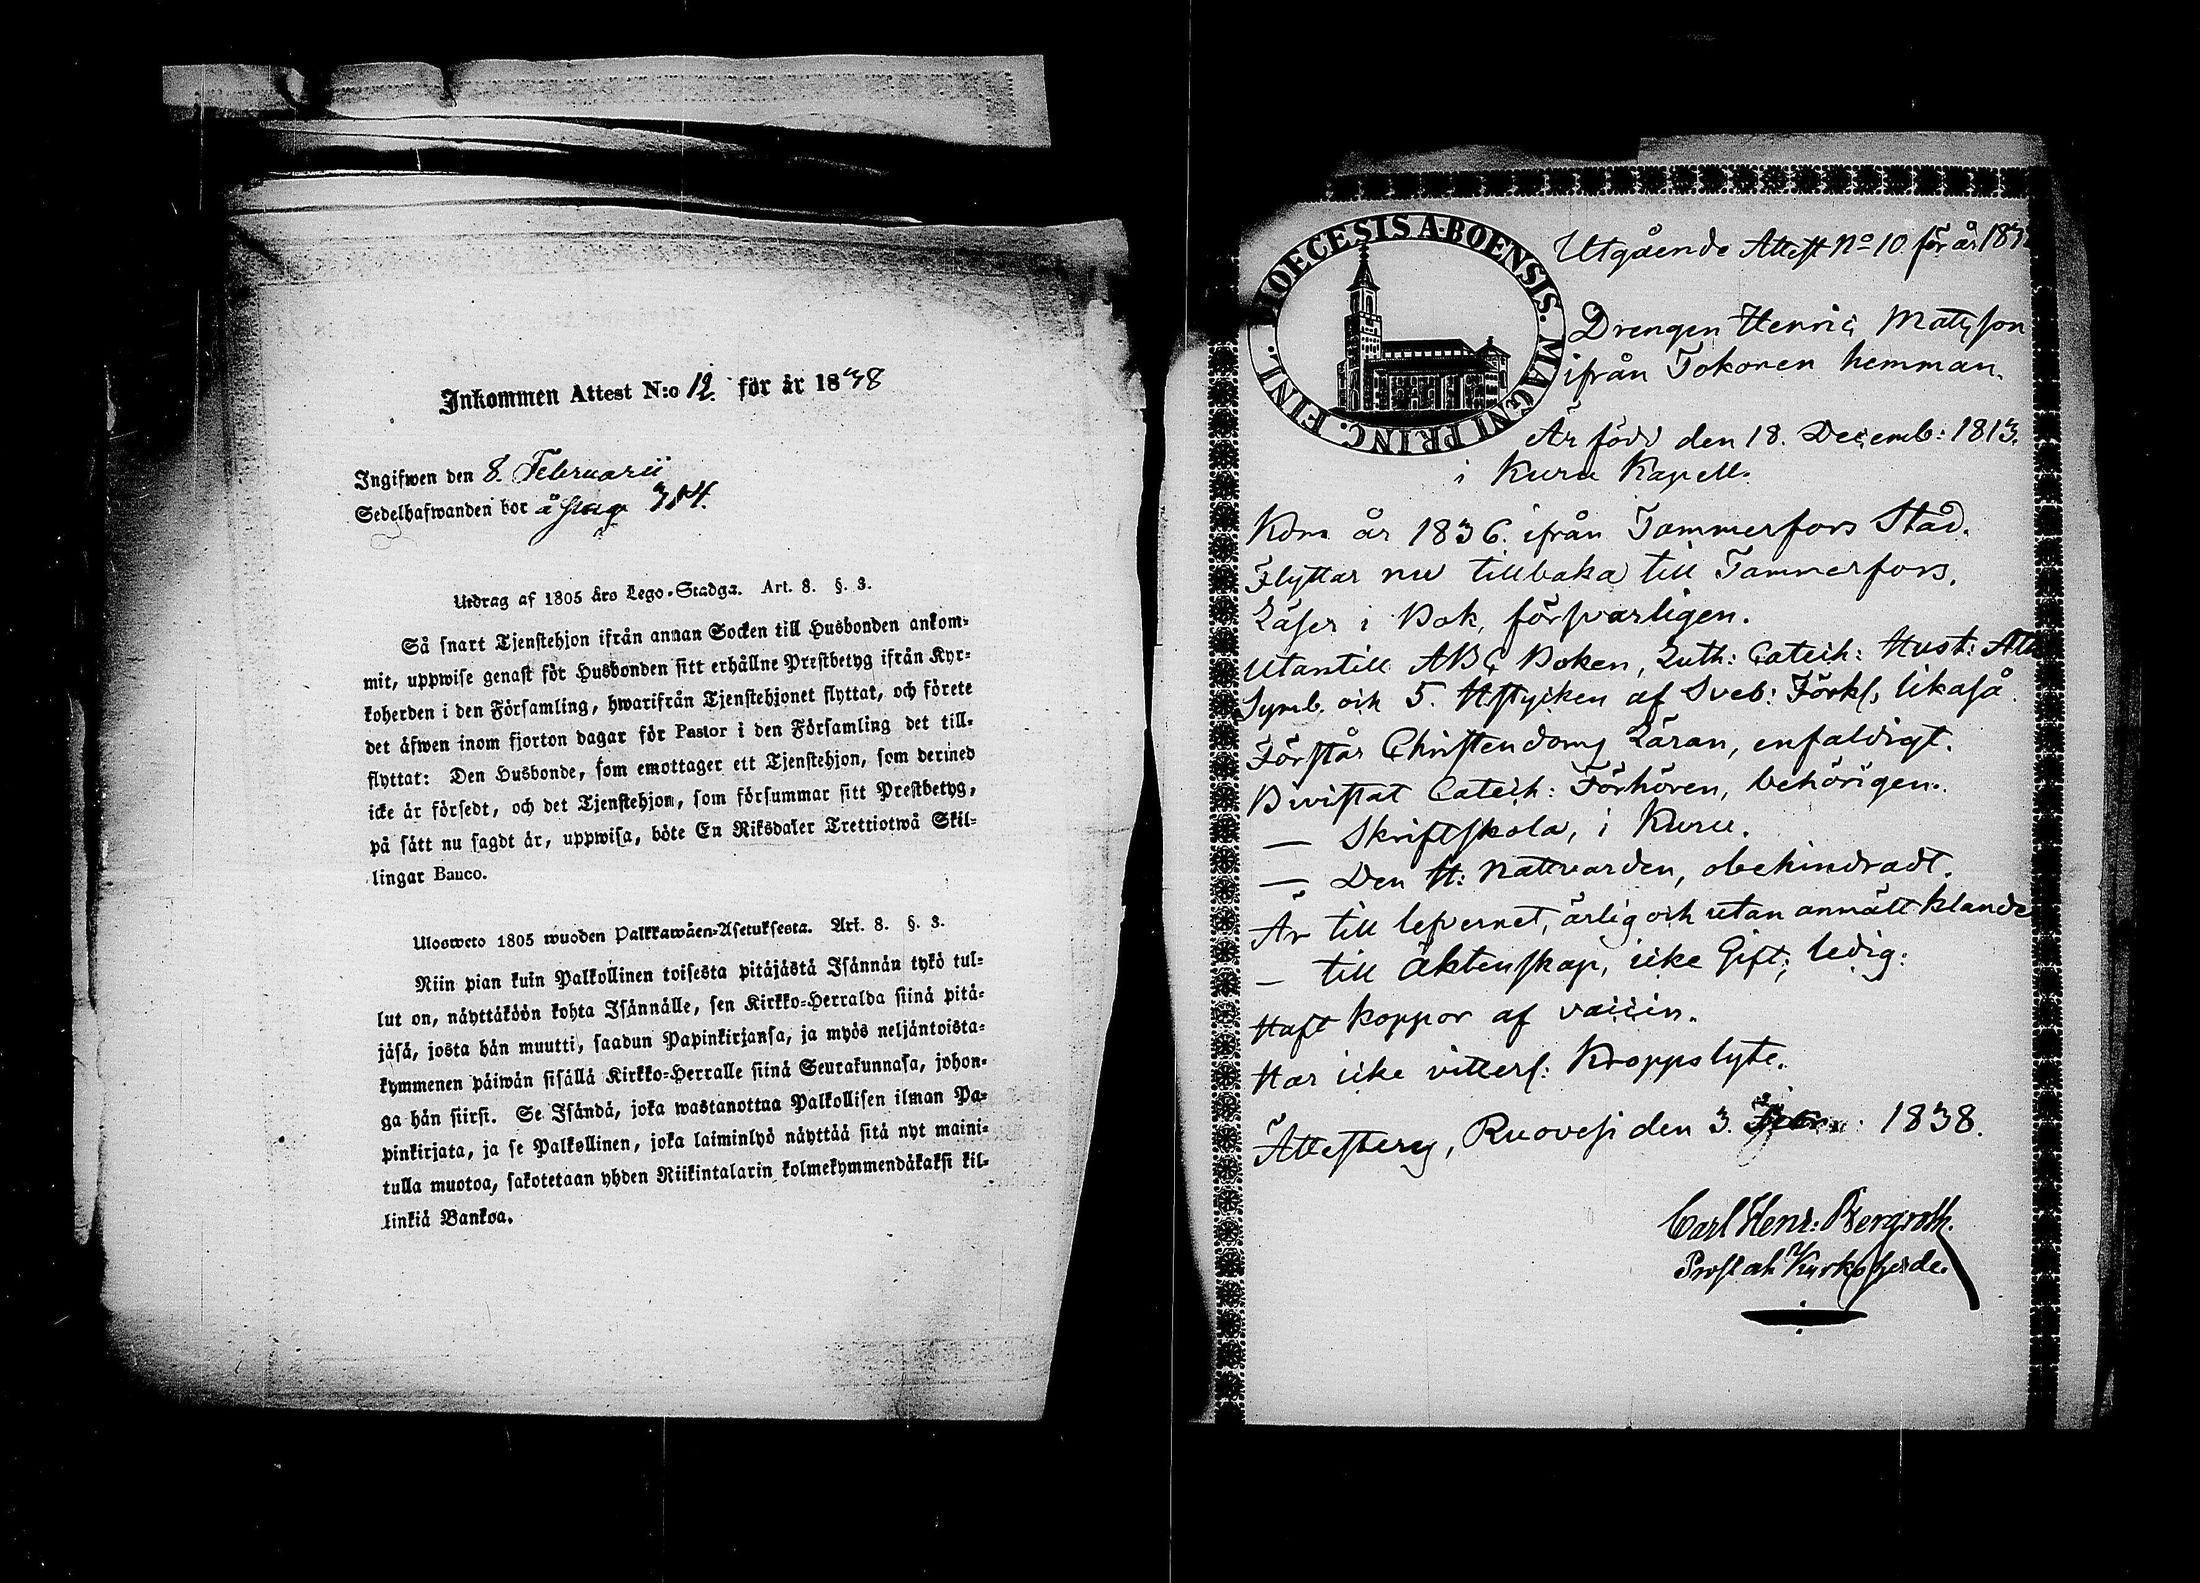 Inkommen Attest N:o 12. för år 1838
Ingifwen den 8. Februarii
Sedelhafwanden bor å pag 314.
Utdrag af 1805 års Lego-Stadga. Art. 8. §. 3.
Så snart Tjenstehjon ifrån annan Socken till Husbonden ankom-
mit, uppwise genast för Husbonden sitt erhållne Prestbetyg ifrån Kyr-
koherden i den Församling, hwarifrån Tjenstehjonet flyttat, och förete
det äfwen inom fjorton dagar för Pastor i den Församling det till-
flyttat: Den Husbonde, som emottager ett Tjenstehjon, som dermed
icke är försedt, och det Tjenstehjon, som försummar sitt Prestbetyg,
på sätt nu sagdt är, uppwisa, böte En Riksdaler Trettiotwå Skil-
lingar Banco.
Ulosweto 1805 wuoden Palkkawäen-Asetuksesta. Art. 8. §. 3.
Niin pian kuin Palkollinen toisesta pitäjästä Isännän tykö tul-
lut on, näyttäköön kohta Isännälle, sen Kirkko-Herralda siinä pitä-
jäsä, josta hän muutti, saadun Papinkirjansa, ja myös neljäntoista-
kymmenen päiwän sisällä Kirkko-Herralle siinä Seurakunnasa, johon-
ga hän siirsi. Se Isändä, joka wastanottaa Palkollisen ilman Pa-
pinkirjata, ja se Palkollinen, joka laiminlyö näyttää sitä nyt maini-
tulla muotoa, sakotetaan yhden Riikintalarin kolmekymmendäkaksi kil-
linkiä Bankoa.
DIOECESIS ABOENSIS. MAGNI PRINC. FINL.
Utgående Attest No 10 för år 183
Drengen Henric Matsson
ifrån Tokonen hemman.
Är född den 18. Decemb: 1813.
i Kuru Kapell.
Kom år 1836. ifrån Tammerfors Stad.
Flyttar nu tillbaka till Tammerfors.
Läser i Bok, försvarligen.
Utantill ABC Boken, Luth: Catech: Hust:
Symb. och 5. Hstycken af Sveb: Förkl, likaså.
Förstår Christendoms Läran, enfaldigt.
Bivistat Catech: Förhören, behörigen.
— Skriftskola, i Kuru.
— Den H: Nattvarden, obehindradt.
Är till lefvernet, ärlig och utan anmält klande
— till äktenskap, icke Gift; ledig:
Haft koppor af vaccin.
Har icke vitterl: Kroppslyte.
Attesterg, Ruovesi den 3. 1838.
Carl Henr: Bergroth.
Prost och Kyrkoherde.